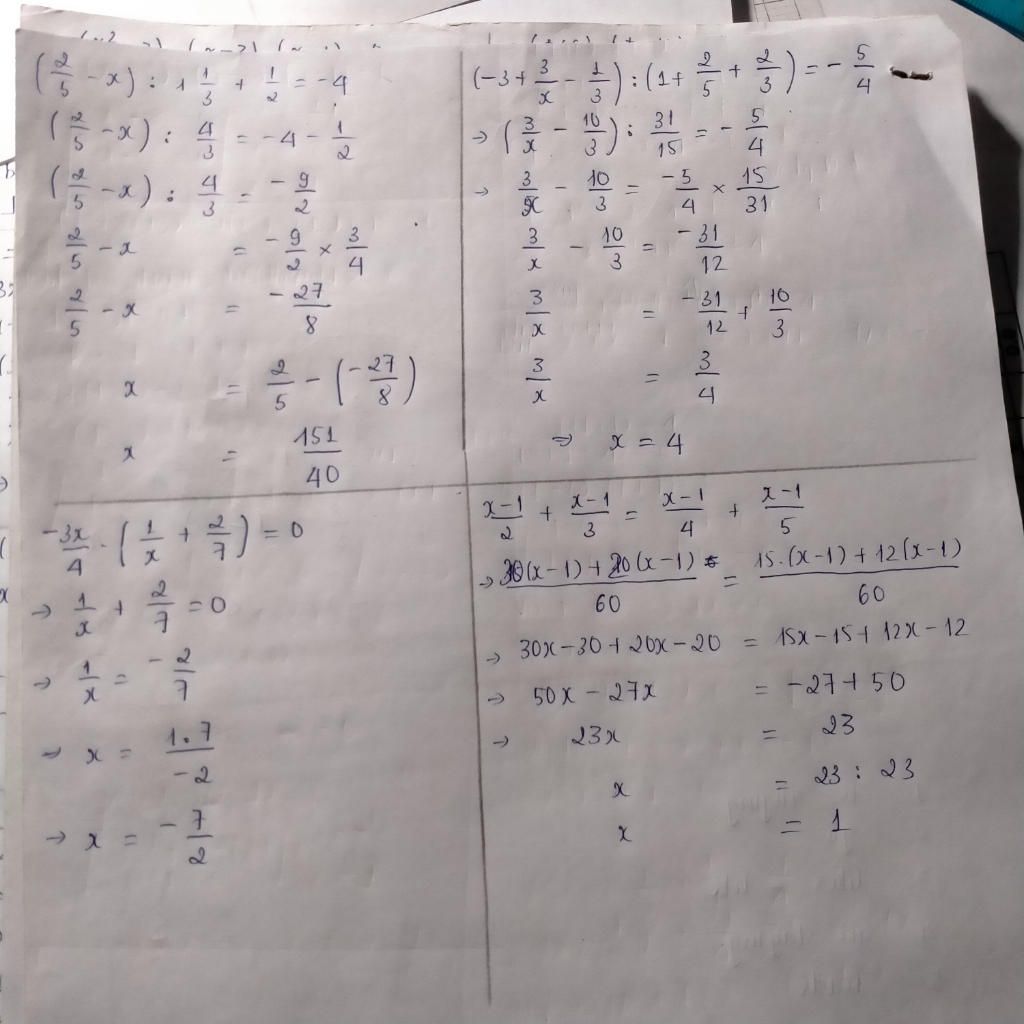 (2/5 - x) : 1 1/3 + 1/2 = -4
(2/5 - x) : 4/3 = -4 - 1/2
(2/5 - x) : 4/3 = -9/2
2/5 - x = -9/2 × 3/4
2/5 - x = -27/8
x = 2/5 - (-27/8)
x = 151/40
(-3 + 3/x - 1/3) : (1 + 2/5 + 2/3) = -5/4
→ (3/x - 10/3) : 31/15 = -5/4
→ 3/x - 10/3 = -5/4 × 15/31
3/x - 10/3 = -31/12
3/x = -31/12 + 10/3
3/x = 3/4
⇒ x = 4
-3x/4 . (1/x + 2/7) = 0
→ 1/x + 2/7 = 0
→ 1/x = -2/7
→ x = 1.7/-2
→ x = -7/2
x-1/2 + x-1/3 = x-1/4 + x-1/5
→ 30(x-1) + 20(x-1)/60 = 15.(x-1) + 12(x-1)/60
→ 30x - 30 + 20x - 20 = 15x - 15 + 12x - 12
→ 50x - 27x = -27 + 50
→ 23x = 23
x = 23 : 23
x = 1